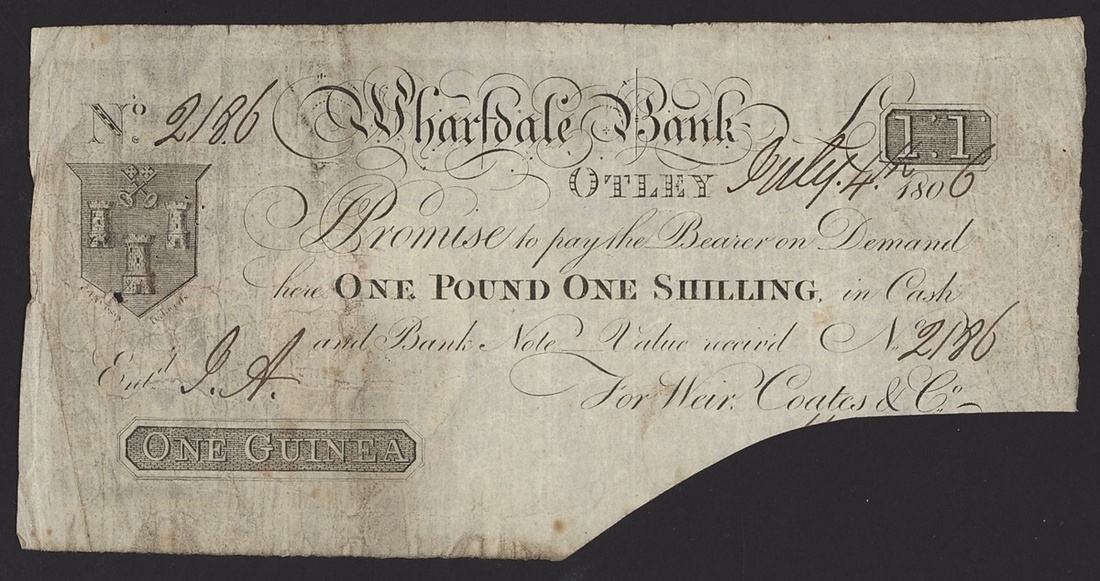 No. 2186 Wharfdale Bank £1.1
OTLEY July 4th 1806
I Promise to pay the Bearer on Demand
here ONE POUND ONE SHILLING, in Cash
and Bank Note Value receiv'd No. 2186
Ent'd J. A.
For Weir, Coates & Co.
ONE GUINEA